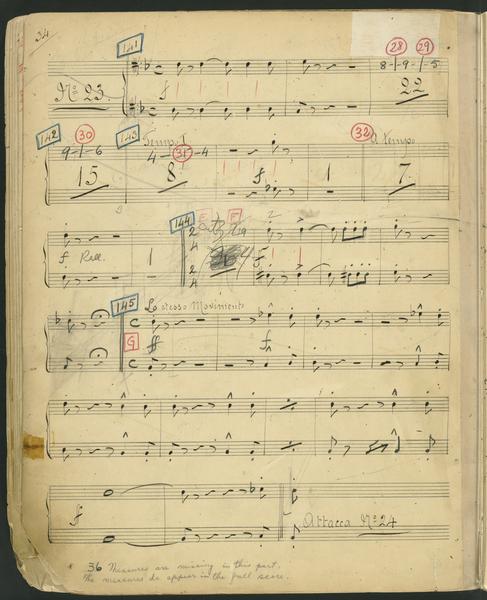 34
141
28 29
8-1-9-1-5
No 23.
f
22
142 30 143 Tempo I 32 A tempo
9-1-6 4-31-4
15 8 f 1 7
144 E F
2 4
f Rall. 1
2 4
145 Lo stesso Movimento
G ff f
f
Attacca No 24
36 Measures are missing in this part.
The measures do appear in the full score.